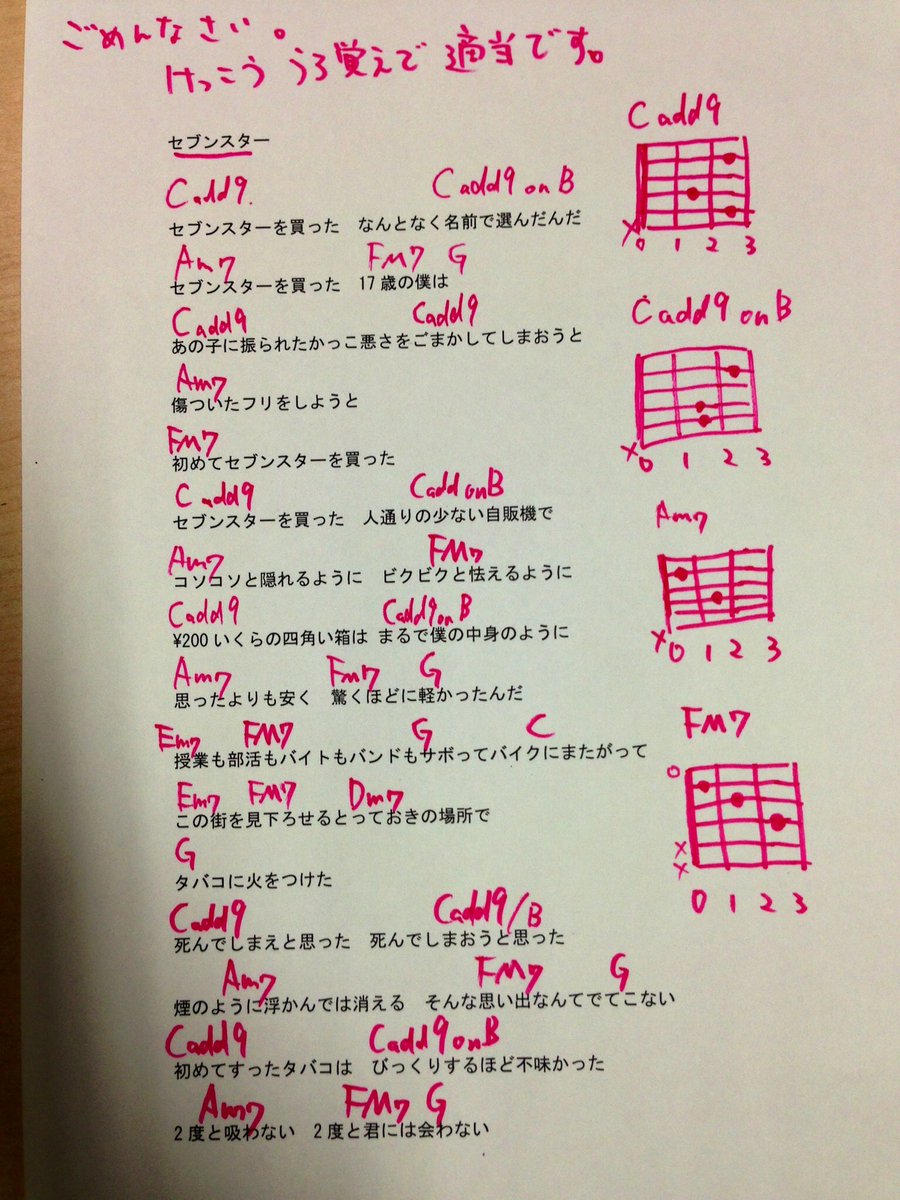 ごめんなさい。
けっこう うろ覚えで 適当です。
セブンスター
Cadd9. Cadd9 on B
セブンスターを買った　なんとなく名前で選んだんだ
Am7 FM7 G
セブンスターを買った　17歳の僕は
Cadd9 Cadd9
あの子に振られたかっこ悪さをごまかしてしまおうと
Am7
傷ついたフリをしようと
FM7
初めてセブンスターを買った
Cadd9 Cadd onB
セブンスターを買った　人通りの少ない自販機で
Am7 FM7
コソコソと隠れるように　ビクビクと怯えるように
Cadd9 Cadd9 on B
¥200いくらの四角い箱は まるで僕の中身のように
Am7 FM7 G
思ったよりも安く　驚くほどに軽かったんだ
Em7 FM7 G C
授業も部活もバイトもバンドもサボってバイクにまたがって
Em7 FM7 Dm7
この街を見下ろせるとっておきの場所で
G
タバコに火をつけた
Cadd9 Cadd9/B
死んでしまえと思った　死んでしまおうと思った
Am7 FM7 G
煙のように浮かんでは消える　そんな思い出なんてでてこない
Cadd9 Cadd9 onB
初めてすったタバコは　びっくりするほど不味かった
Am7 FM7 G
2度と吸わない　2度と君には会わない
Cadd9
× 0 1 2 3
Cadd9 on B
× 0 1 2 3
Am7
× 0 1 2 3
FM7
○
×
×
0 1 2 3